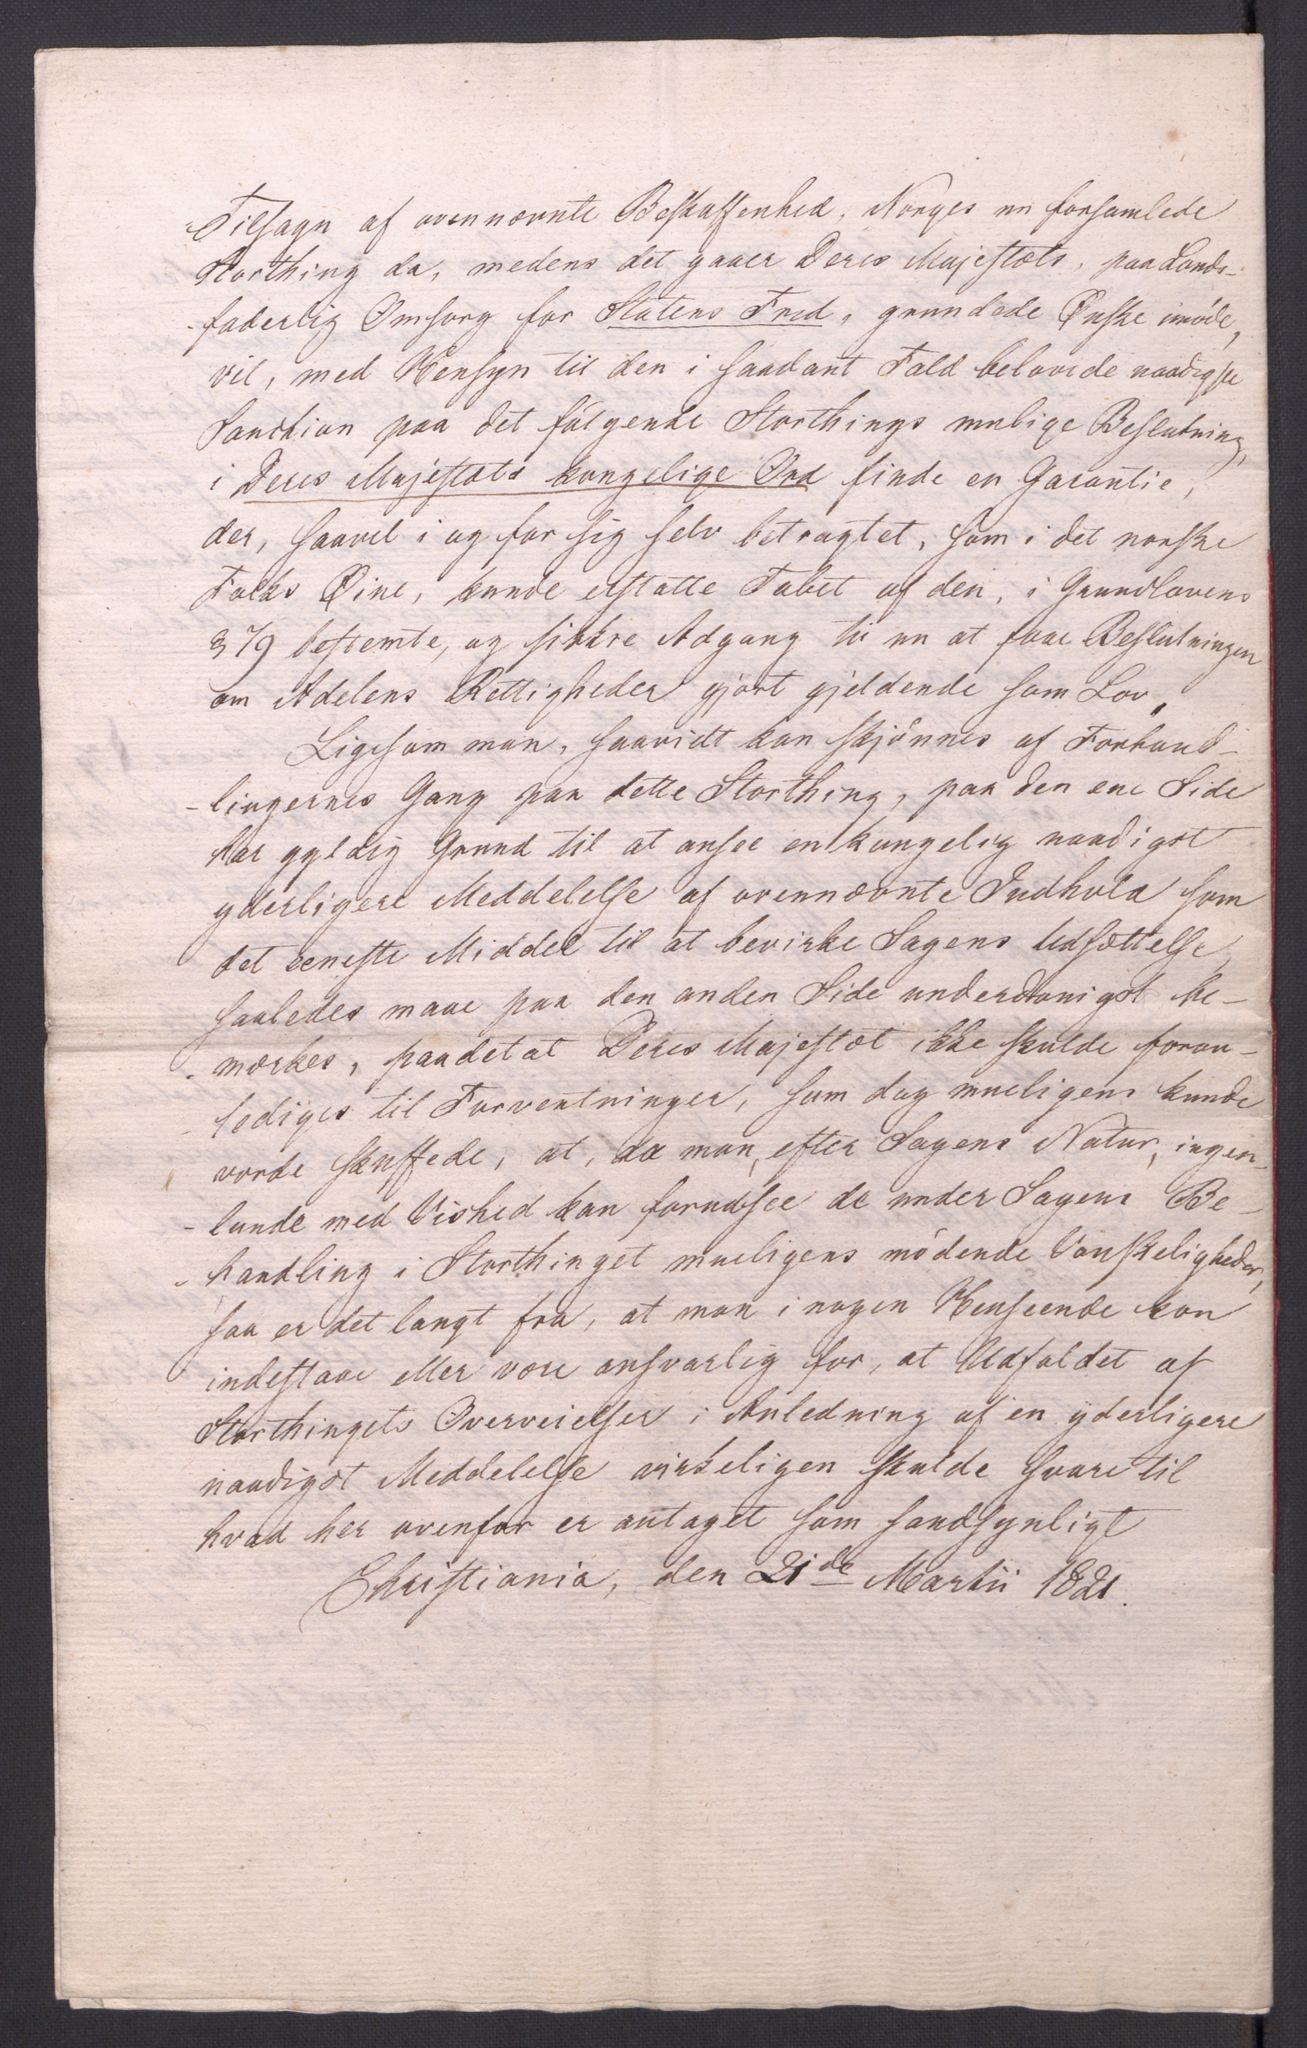 Tilsagn af ovennævnte Beskaffenhed. Norges nu forsamlede
Storthing da, medens det gaaer Deres Majestæts, paa Lands-
-faderlig Omsorg for Statens Fred, grundede Ønske imøde,
vil, med Hensyn til den i saadant Fald belovede naadigste
Sanction paa det følgende Storthings mulige Beslutning,
i Deres Majestæts kongelige Ord finde en Garantie,
der, saavel i og for sig selv betragtet, som i det norske
Folks Øine, kunde erstatte Tabet af den, i Grundlovens
§ 79 bestemte, og sikkre Adgang til nu at faae Beslutningen
om Adelens Rettigheder gjort gjeldende som Lov.
Ligesom man, saavidt kan skjønnes af Forhand-
-lingernes Gang paa dette Storthing, paa den ene Side
har gyldig Grund til at ansee en kongelig naadigst
yderligere Meddelelse af ovennævnte Indhold som
det eeneste Middel til at bevirke Sagens Udsættelse,
saaledes maae paa den anden Side underdanigst be-
-mærkes, paadetat Deres Majestæt ikke skulde foran-
-lediges til Forventninger, som dog mueligens kunde
vorde skuffede, at, da man, efter Sagens Natur, ingen-
-lunde med Vished kan forudsee de under Sagens Be-
-handling i Storthinget mueligens mødende Vanskeligheder,
saa er det langt fra, at man i nogen Henseende kan
indestaae eller være ansvarlig for, at Udfaldet af
Storthingets Overveielser i Anledning af en yderligere
naadigst Meddelelse virkeligen skulde svare til
hvad her ovenfor er antaget som sandsynligt
Christiania, den 21de Martii 1821.